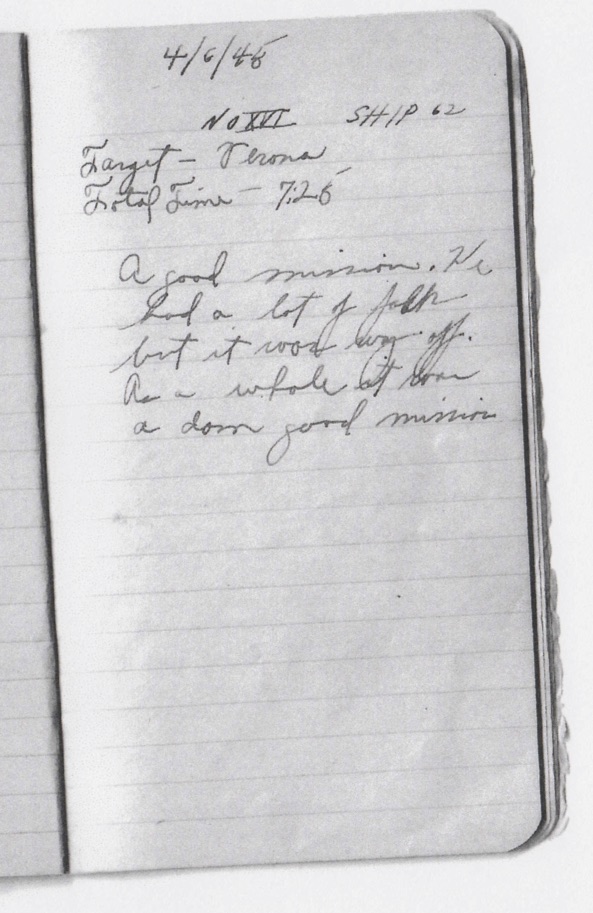 4/6/45
No XVI SHIP 62
Target - Verona
Total Time - 7:25
A good mission. We
had a lot of flak
but it was way off.
As a whole it was
a darn good mission